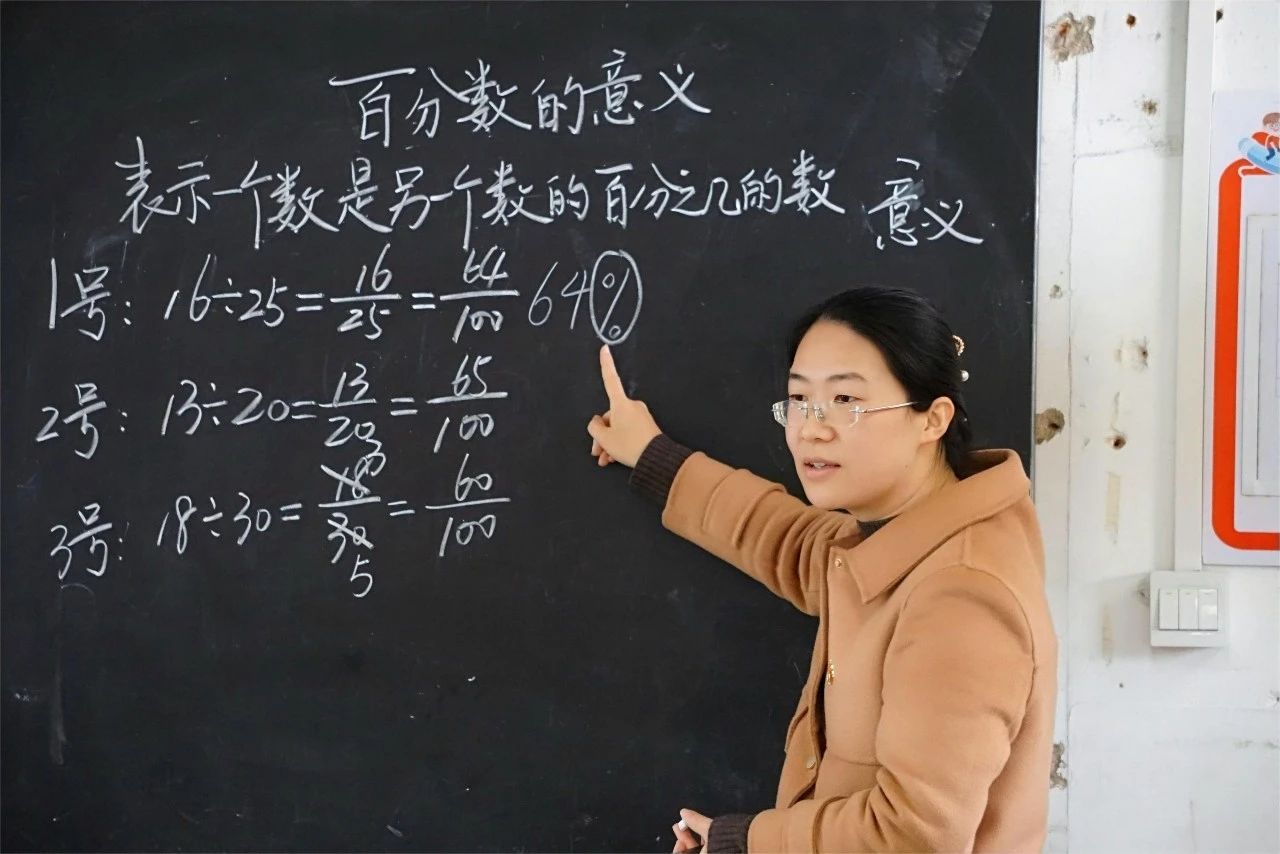 百分数的意义
表示一个数是另一个数的百分之几的数 意义
1号: 16÷25=16/25=64/100 64%
2号: 13÷20=13/20=65/100
3号: 18÷30=18/30=60/100
3
5